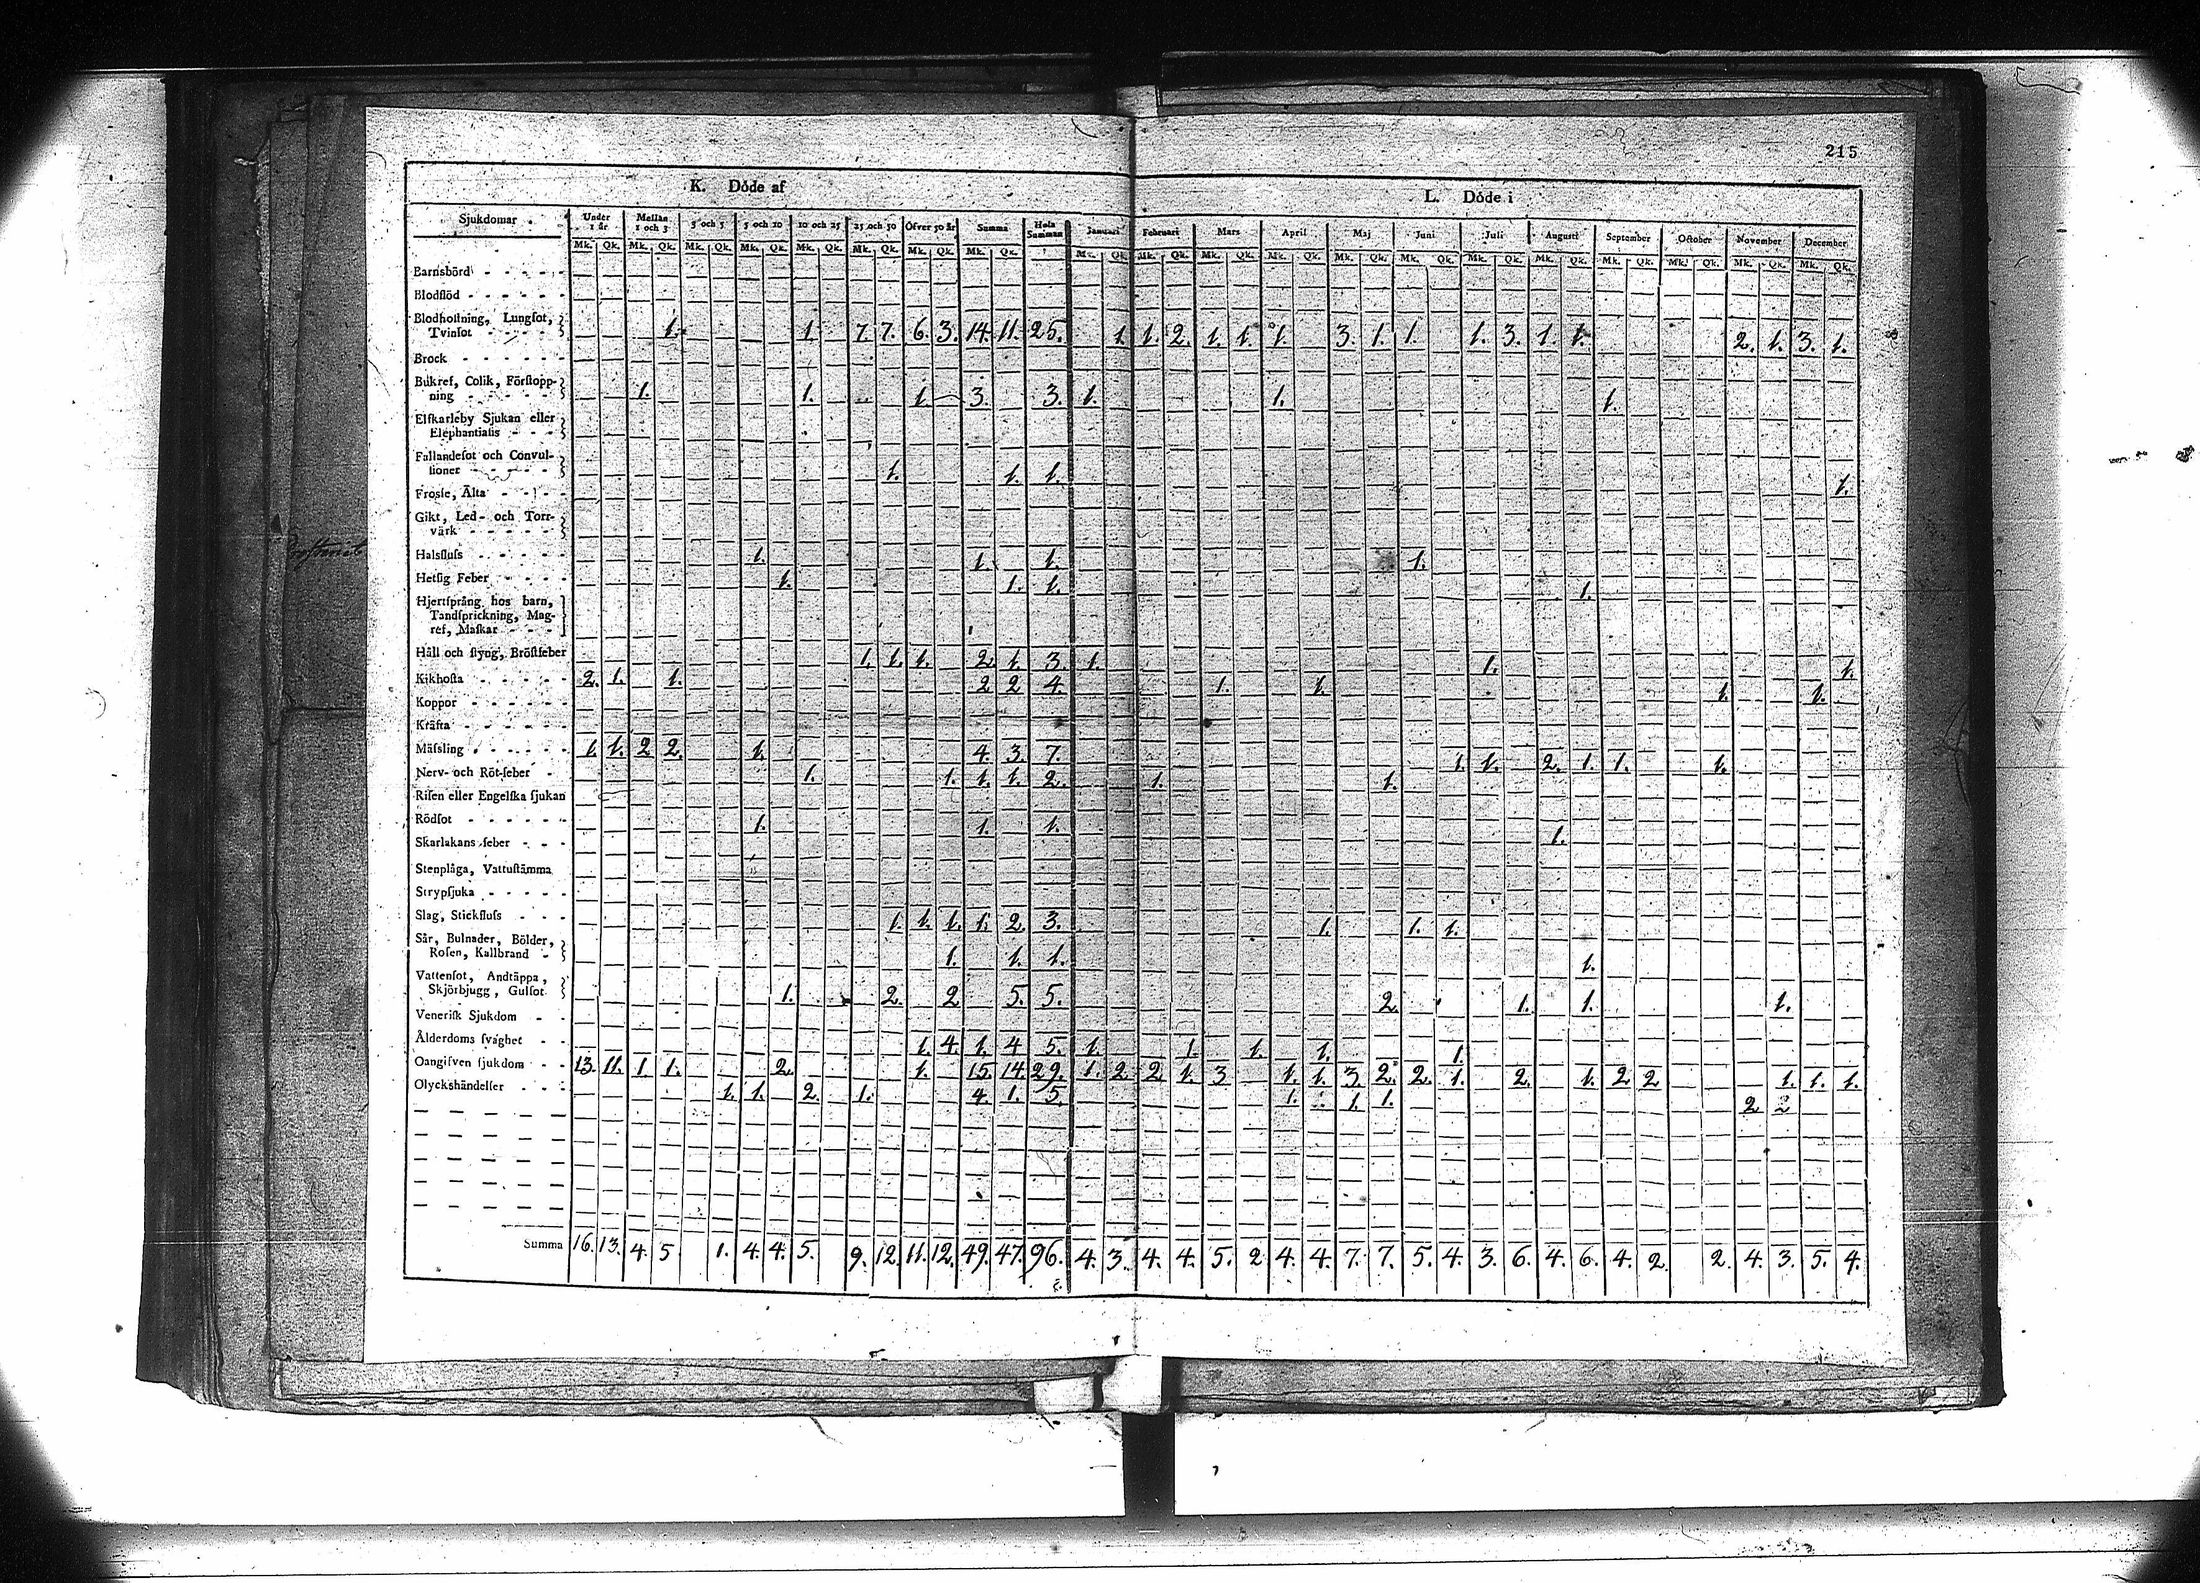 215
K. Döde af
L. Döde i
Sjukdomar Under 1 år Mellan 1 och 3 3 och 5 5 och 10 10 och 25 25 och 50 Öfver 50 år Summa Hela Summan Januari Februari Mars April Maj Juni Juli Augusti September October November December
Mk. Qk. Mk. Qk. Mk. Qk. Mk. Qk. Mk. Qk. Mk. Qk. Mk. Qk. Mk. Qk. Mk. Qk. Mk. Qk. Mk. Qk. Mk. Qk. Mk. Qk. Mk. Qk. Mk. Qk. Mk. Qk. Mk. Qk. Mk. Qk. Mk. Qk. Mk. Qk.
Barnsbörd
Blodflöd
Blodhostning, Lungsot,
Tvinsot 1. 1. 7. 7. 6. 3. 14. 11. 25. 1. 1. 2. 1. 1. 1. 3. 1. 1. 1. 3. 1. 1. 2. 1. 3. 1.
Brock
Bukref, Colik, Förstopp-
ning 1. 1. 1. 3. 3. 1. 1. 1.
Elfkarleby Sjukan eller
Elephantiasis
Fallandesot och Convul-
sioner 1. 1. 1. 1.
Frossa, Älta
Gikt, Led- och Torr-
värk
Halsfluss 1. 1. 1. 1.
Hetsig Feber 1. 1. 1. 1.
Hjertsprång hos barn,
Tandsprickning, Mag-
ref, Maskar
Håll och styng, Bröstfeber 1. 1. 1. 2. 1. 3. 1. 1. 1.
Kikhosta 2. 1. 1. 2 2 4. 1. 1. 1. 1.
Koppor
Kräfta
Mässling 1. 1. 2 2. 1. 4. 3. 7. 1. 1. 2. 1. 1. 1.
Nerv- och Röt-feber 1. 1. 1. 1. 2. 1. 1.
Risen eller Engelska sjukan
Rödsot 1. 1. 1. 1.
Skarlakans feber
Stenplåga, Vattustämma
Strypsjuka
Slag, Stickfluss 1. 1. 1. 1. 2. 3. 1. 1. 1.
Sår, Bulnader, Bölder,
Rosen, Kallbrand 1. 1. 1. 1.
Vattensot, Andtäppa,
Skjörbjugg, Gulsot 1. 2. 2 5. 5. 2. 1. 1. 1.
Venerisk Sjukdom
Ålderdoms svaghet 1. 4. 1. 4 5. 1. 1. 1. 1. 1.
Oangifven sjukdom 13. 11. 1. 1. 2. 1. 15. 14. 29. 1. 2. 2. 1. 3 1. 1. 3. 2. 2. 1. 2. 1. 2 2 1. 1. 1.
Olyckshändelser 1. 1. 2. 1. 4. 1. 5. 1. 1. 1. 2 2
Summa 16. 13. 4. 5 1. 4. 4. 5. 9. 12. 11. 12. 49. 47. 96. 4. 3. 4. 4. 5. 2 4. 4. 7. 7. 5. 4. 3. 6. 4. 6. 4. 2. 2. 4. 3. 5. 4.